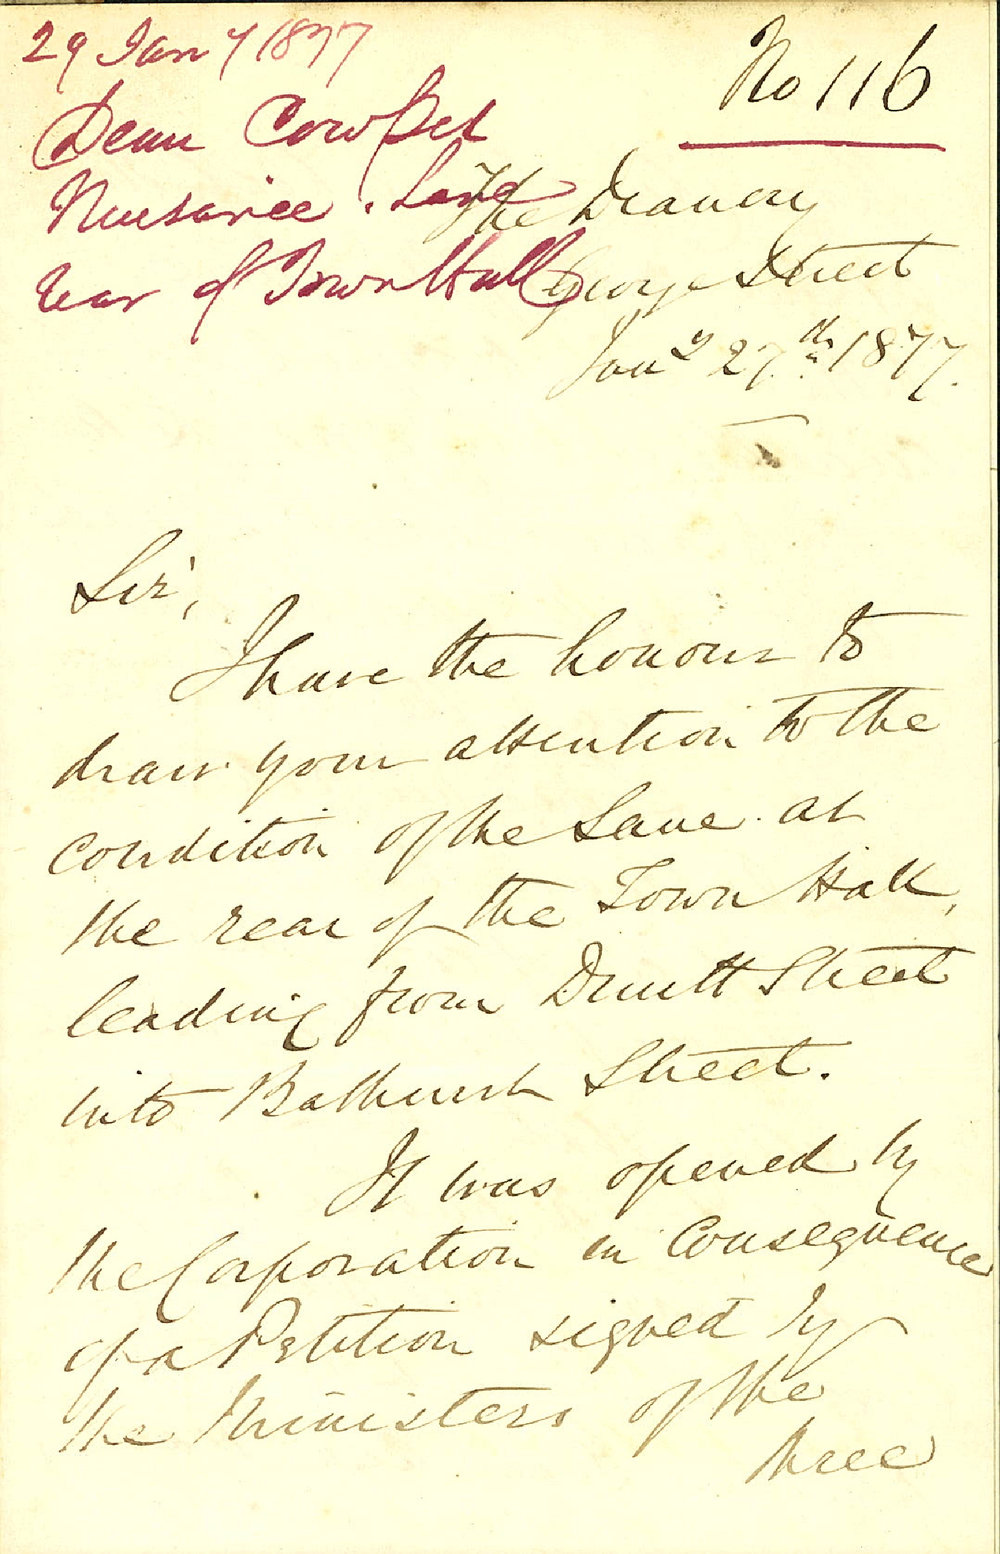 29 Jany 1877
No 116
Dean Cowper
Nuisance. Lane
rear of Town Hall
The Deanery
George Street
Jany 27th. 1877.
Sir,
I have the honour to
draw your attention to the
condition of the Lane at
the rear of the Town Hall,
leading from Druitt Street
into Bathurst Street.
It was opened by
the Corporation in Consequence
of a Petition signed by
the Ministers of the
three